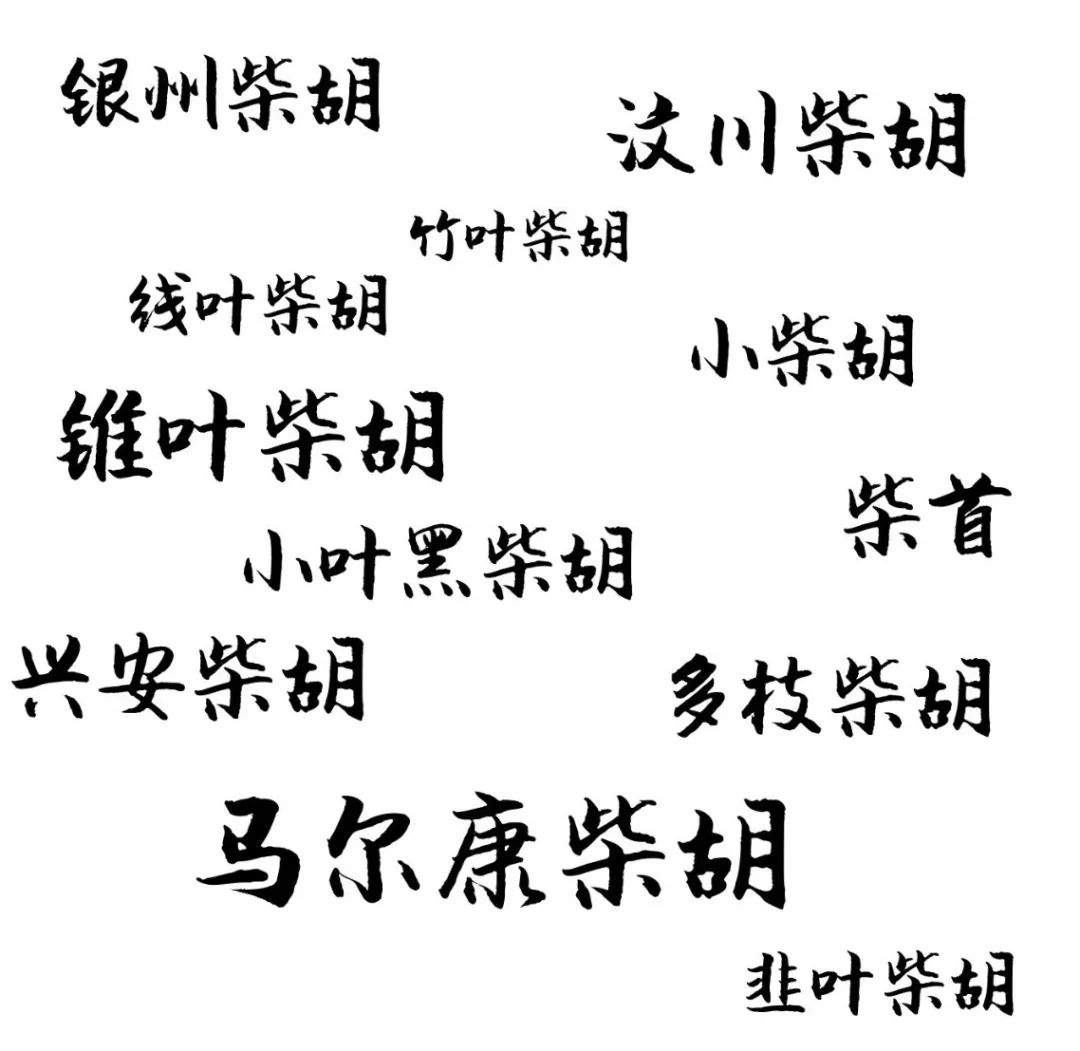 银州柴胡
汶川柴胡
竹叶柴胡
线叶柴胡
小柴胡
锥叶柴胡
柴首
小叶黑柴胡
兴安柴胡
多枝柴胡
马尔康柴胡
韭叶柴胡